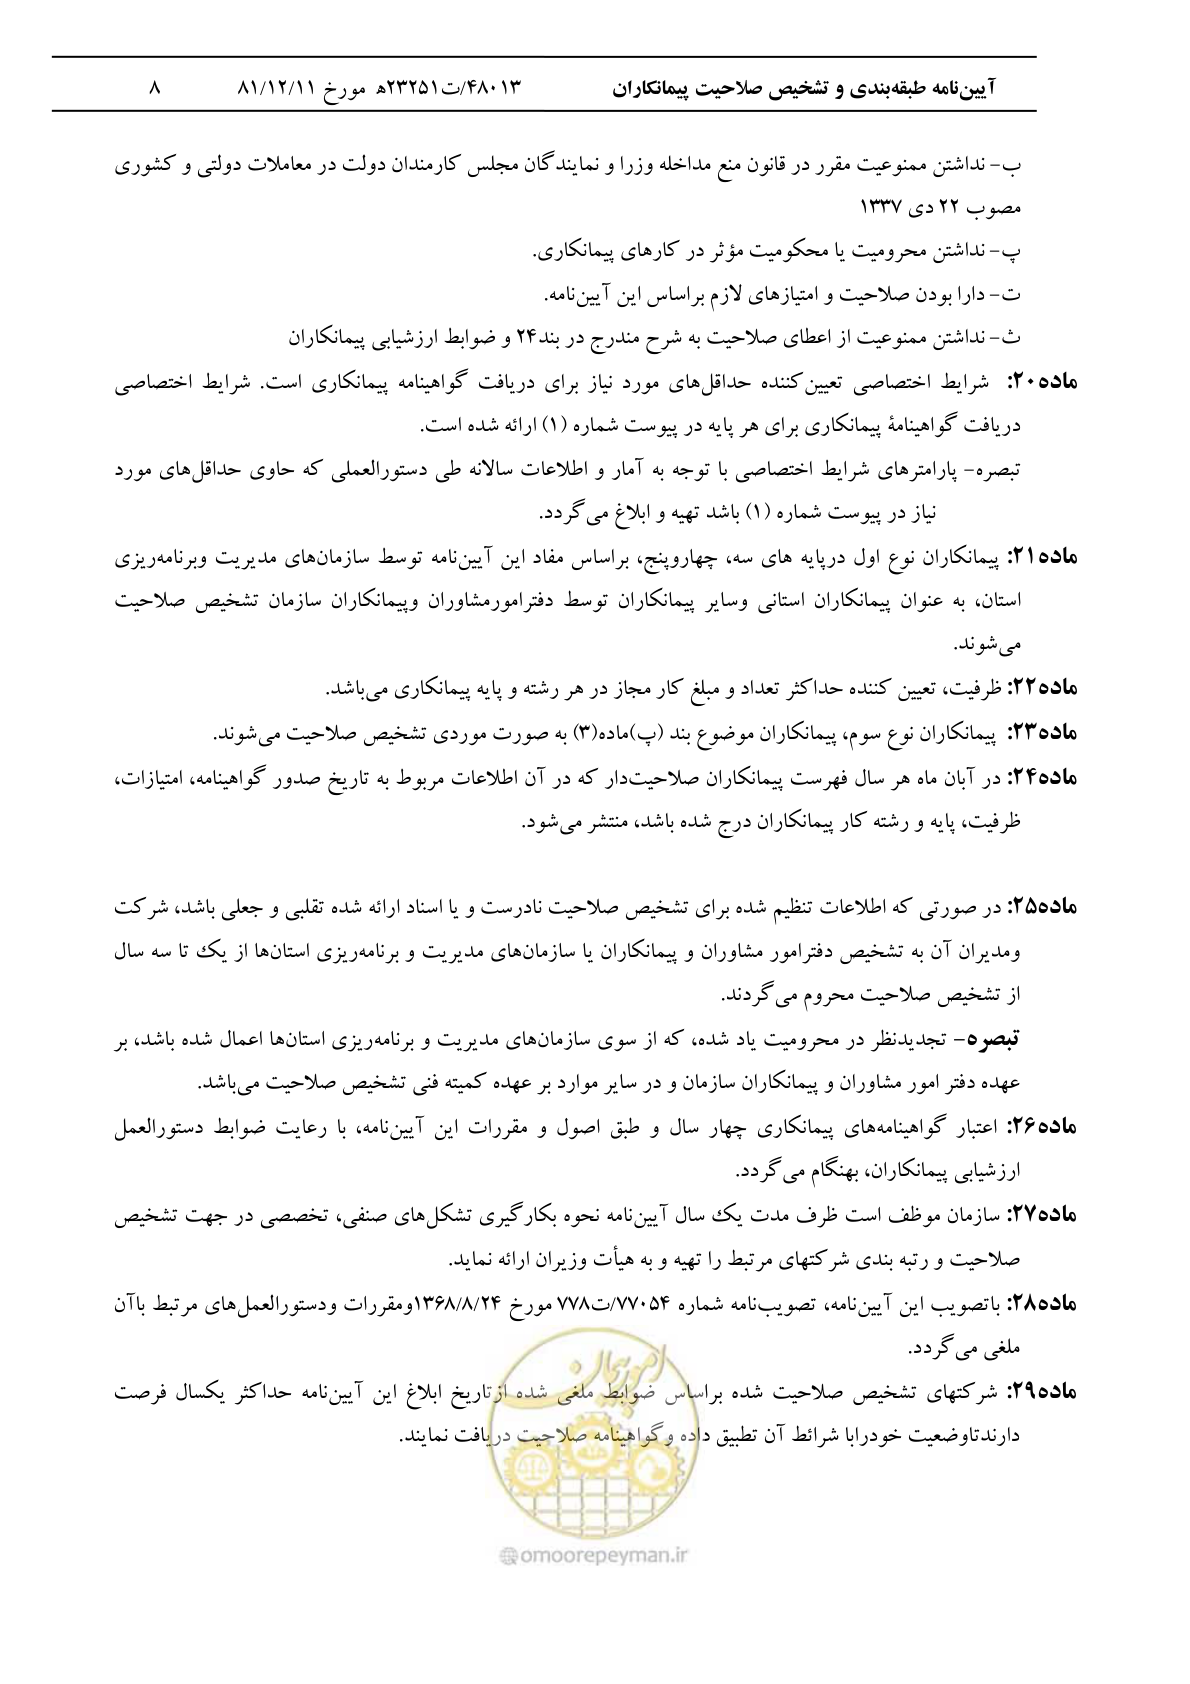 آیین‌نامه طبقه‌بندی و تشخیص صلاحیت پیمانکاران ۴۸۰۱۳/ت۲۳۲۵۱ه مورخ ۸۱/۱۲/۱۱ ۸
ب- نداشتن ممنوعیت مقرر در قانون منع مداخله وزرا و نمایندگان مجلس کارمندان دولت در معاملات دولتی و کشوری
مصوب ۲۲ دی ۱۳۳۷
پ- نداشتن محرومیت یا محکومیت مؤثر در کارهای پیمانکاری.
ت- دارا بودن صلاحیت و امتیازهای لازم براساس این آیین‌نامه.
ث- نداشتن ممنوعیت از اعطای صلاحیت به شرح مندرج در بند۲۴ و ضوابط ارزشیابی پیمانکاران
ماده۲۰: شرایط اختصاصی تعیین‌کننده حداقل‌های مورد نیاز برای دریافت گواهینامه پیمانکاری است. شرایط اختصاصی
دریافت گواهینامۀ پیمانکاری برای هر پایه در پیوست شماره (۱) ارائه شده است.
تبصره- پارامترهای شرایط اختصاصی با توجه به آمار و اطلاعات سالانه طی دستورالعملی که حاوی حداقل‌های مورد
نیاز در پیوست شماره (۱) باشد تهیه و ابلاغ می‌گردد.
ماده۲۱: پیمانکاران نوع اول درپایه های سه، چهاروپنج، براساس مفاد این آیین‌نامه توسط سازمان‌های مدیریت وبرنامه‌ریزی
استان، به عنوان پیمانکاران استانی وسایر پیمانکاران توسط دفترامورمشاوران وپیمانکاران سازمان تشخیص صلاحیت
می‌شوند.
ماده۲۲: ظرفیت، تعیین کننده حداکثر تعداد و مبلغ کار مجاز در هر رشته و پایه پیمانکاری می‌باشد.
ماده۲۳: پیمانکاران نوع سوم، پیمانکاران موضوع بند (پ)ماده(۳) به صورت موردی تشخیص صلاحیت می‌شوند.
ماده۲۴: در آبان ماه هر سال فهرست پیمانکاران صلاحیت‌دار که در آن اطلاعات مربوط به تاریخ صدور گواهینامه، امتیازات،
ظرفیت، پایه و رشته کار پیمانکاران درج شده باشد، منتشر می‌شود.
ماده۲۵: در صورتی که اطلاعات تنظیم شده برای تشخیص صلاحیت نادرست و یا اسناد ارائه شده تقلبی و جعلی باشد، شرکت
ومدیران آن به تشخیص دفترامور مشاوران و پیمانکاران یا سازمان‌های مدیریت و برنامه‌ریزی استان‌ها از یک تا سه سال
از تشخیص صلاحیت محروم می‌گردند.
تبصره- تجدیدنظر در محرومیت یاد شده، که از سوی سازمان‌های مدیریت و برنامه‌ریزی استان‌ها اعمال شده باشد، بر
عهده دفتر امور مشاوران و پیمانکاران سازمان و در سایر موارد بر عهده کمیته فنی تشخیص صلاحیت می‌باشد.
ماده۲۶: اعتبار گواهینامه‌های پیمانکاری چهار سال و طبق اصول و مقررات این آیین‌نامه، با رعایت ضوابط دستورالعمل
ارزشیابی پیمانکاران، بهنگام می‌گردد.
ماده۲۷: سازمان موظف است ظرف مدت یک سال آیین‌نامه نحوه بکارگیری تشکل‌های صنفی، تخصصی در جهت تشخیص
صلاحیت و رتبه بندی شرکتهای مرتبط را تهیه و به هیأت وزیران ارائه نماید.
ماده۲۸: باتصویب این آیین‌نامه، تصویب‌نامه شماره ۷۷۰۵۴/ت۷۷۸ مورخ ۱۳۶۸/۸/۲۴ومقررات ودستورالعمل‌های مرتبط باآن
ملغی می‌گردد.
ماده۲۹: شرکتهای تشخیص صلاحیت شده براساس ضوابط ملغی شده ازتاریخ ابلاغ این آیین‌نامه حداکثر یکسال فرصت
دارندتاوضعیت خودرابا شرائط آن تطبیق داده وگواهینامه صلاحیت دریافت نمایند.
امور پیمان
omoorepeyman.ir